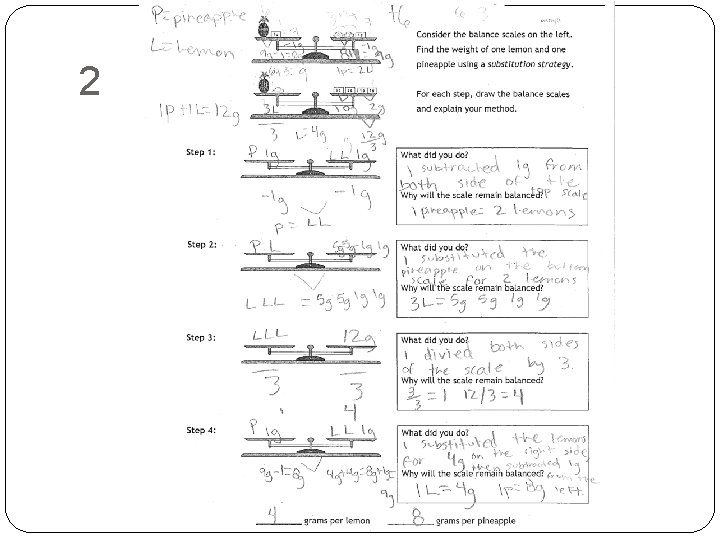 P=pineapple
L=Lemon
2
1P+1L=12g
Consider the balance scales on the left.
Find the weight of one lemon and one
pineapple using a substitution strategy.
For each step, draw the balance scales
and explain your method.
1P=2L
3L
3
L=4g
12g
3
Step 1:
P 1g
LL 1g
-1g
-1g
P = LL
What did you do?
I subtracted 1g from
both side of the
top scale
Why will the scale remain balanced?
1 pineapple = 2 lemons
Step 2:
P L
5g 5g 1g 1g
L L L = 5g 5g 1g 1g
What did you do?
I substituted the
pineapple on the bottom
scale for 2 lemons
Why will the scale remain balanced?
3L=5g 5g 1g 1g
Step 3:
LLL
12g
3
3
4
What did you do?
I divied both sides
of the scale by 3.
Why will the scale remain balanced?
3/3 = 1 12/3=4
Step 4:
P 1g
L L 1g
9g-1=8g
4g+4g=8g+1g=
9g
What did you do?
I substituted the lemons
for 4g on the right side
then subtracted 1g
from the
left.
Why will the scale remain balanced?
1L=4g 1p=8g
4 grams per lemon
8 grams per pineapple